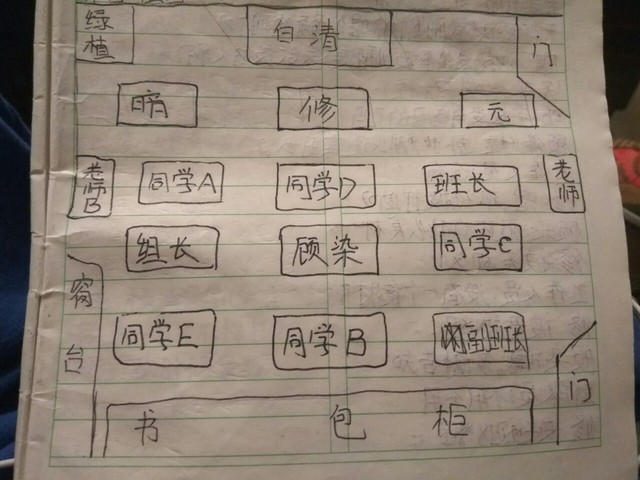 绿植
白清
门
晴
修
元
老师B
同学A
同学D
班长
老师
组长
顾染
同学C
窗台
同学E
同学B
副班长
门
书包柜